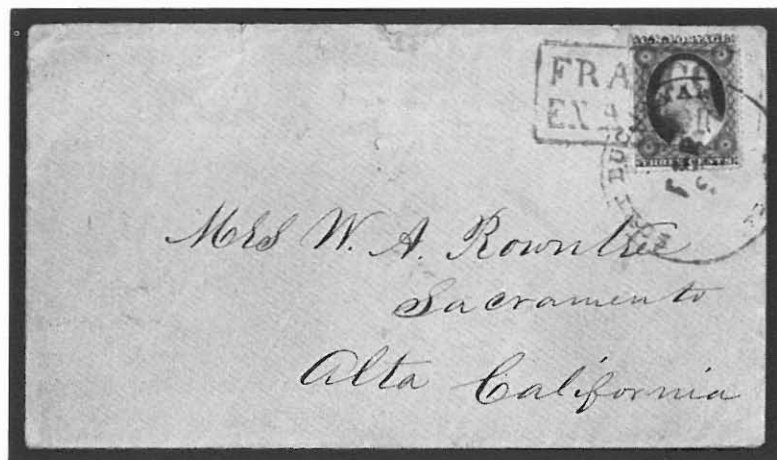 FRA CO
EX
THREE CENTS
Mrs W. A. Rowntree
Sacramento
Alta California